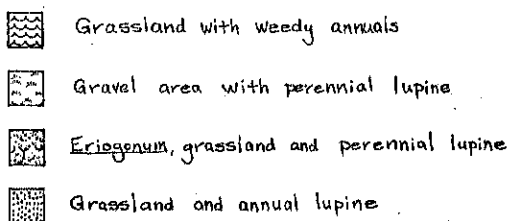 Grassland with weedy annuals
Gravel area with perennial lupine
Eriogonum, grassland and perennial lupine
Grassland and annual lupine